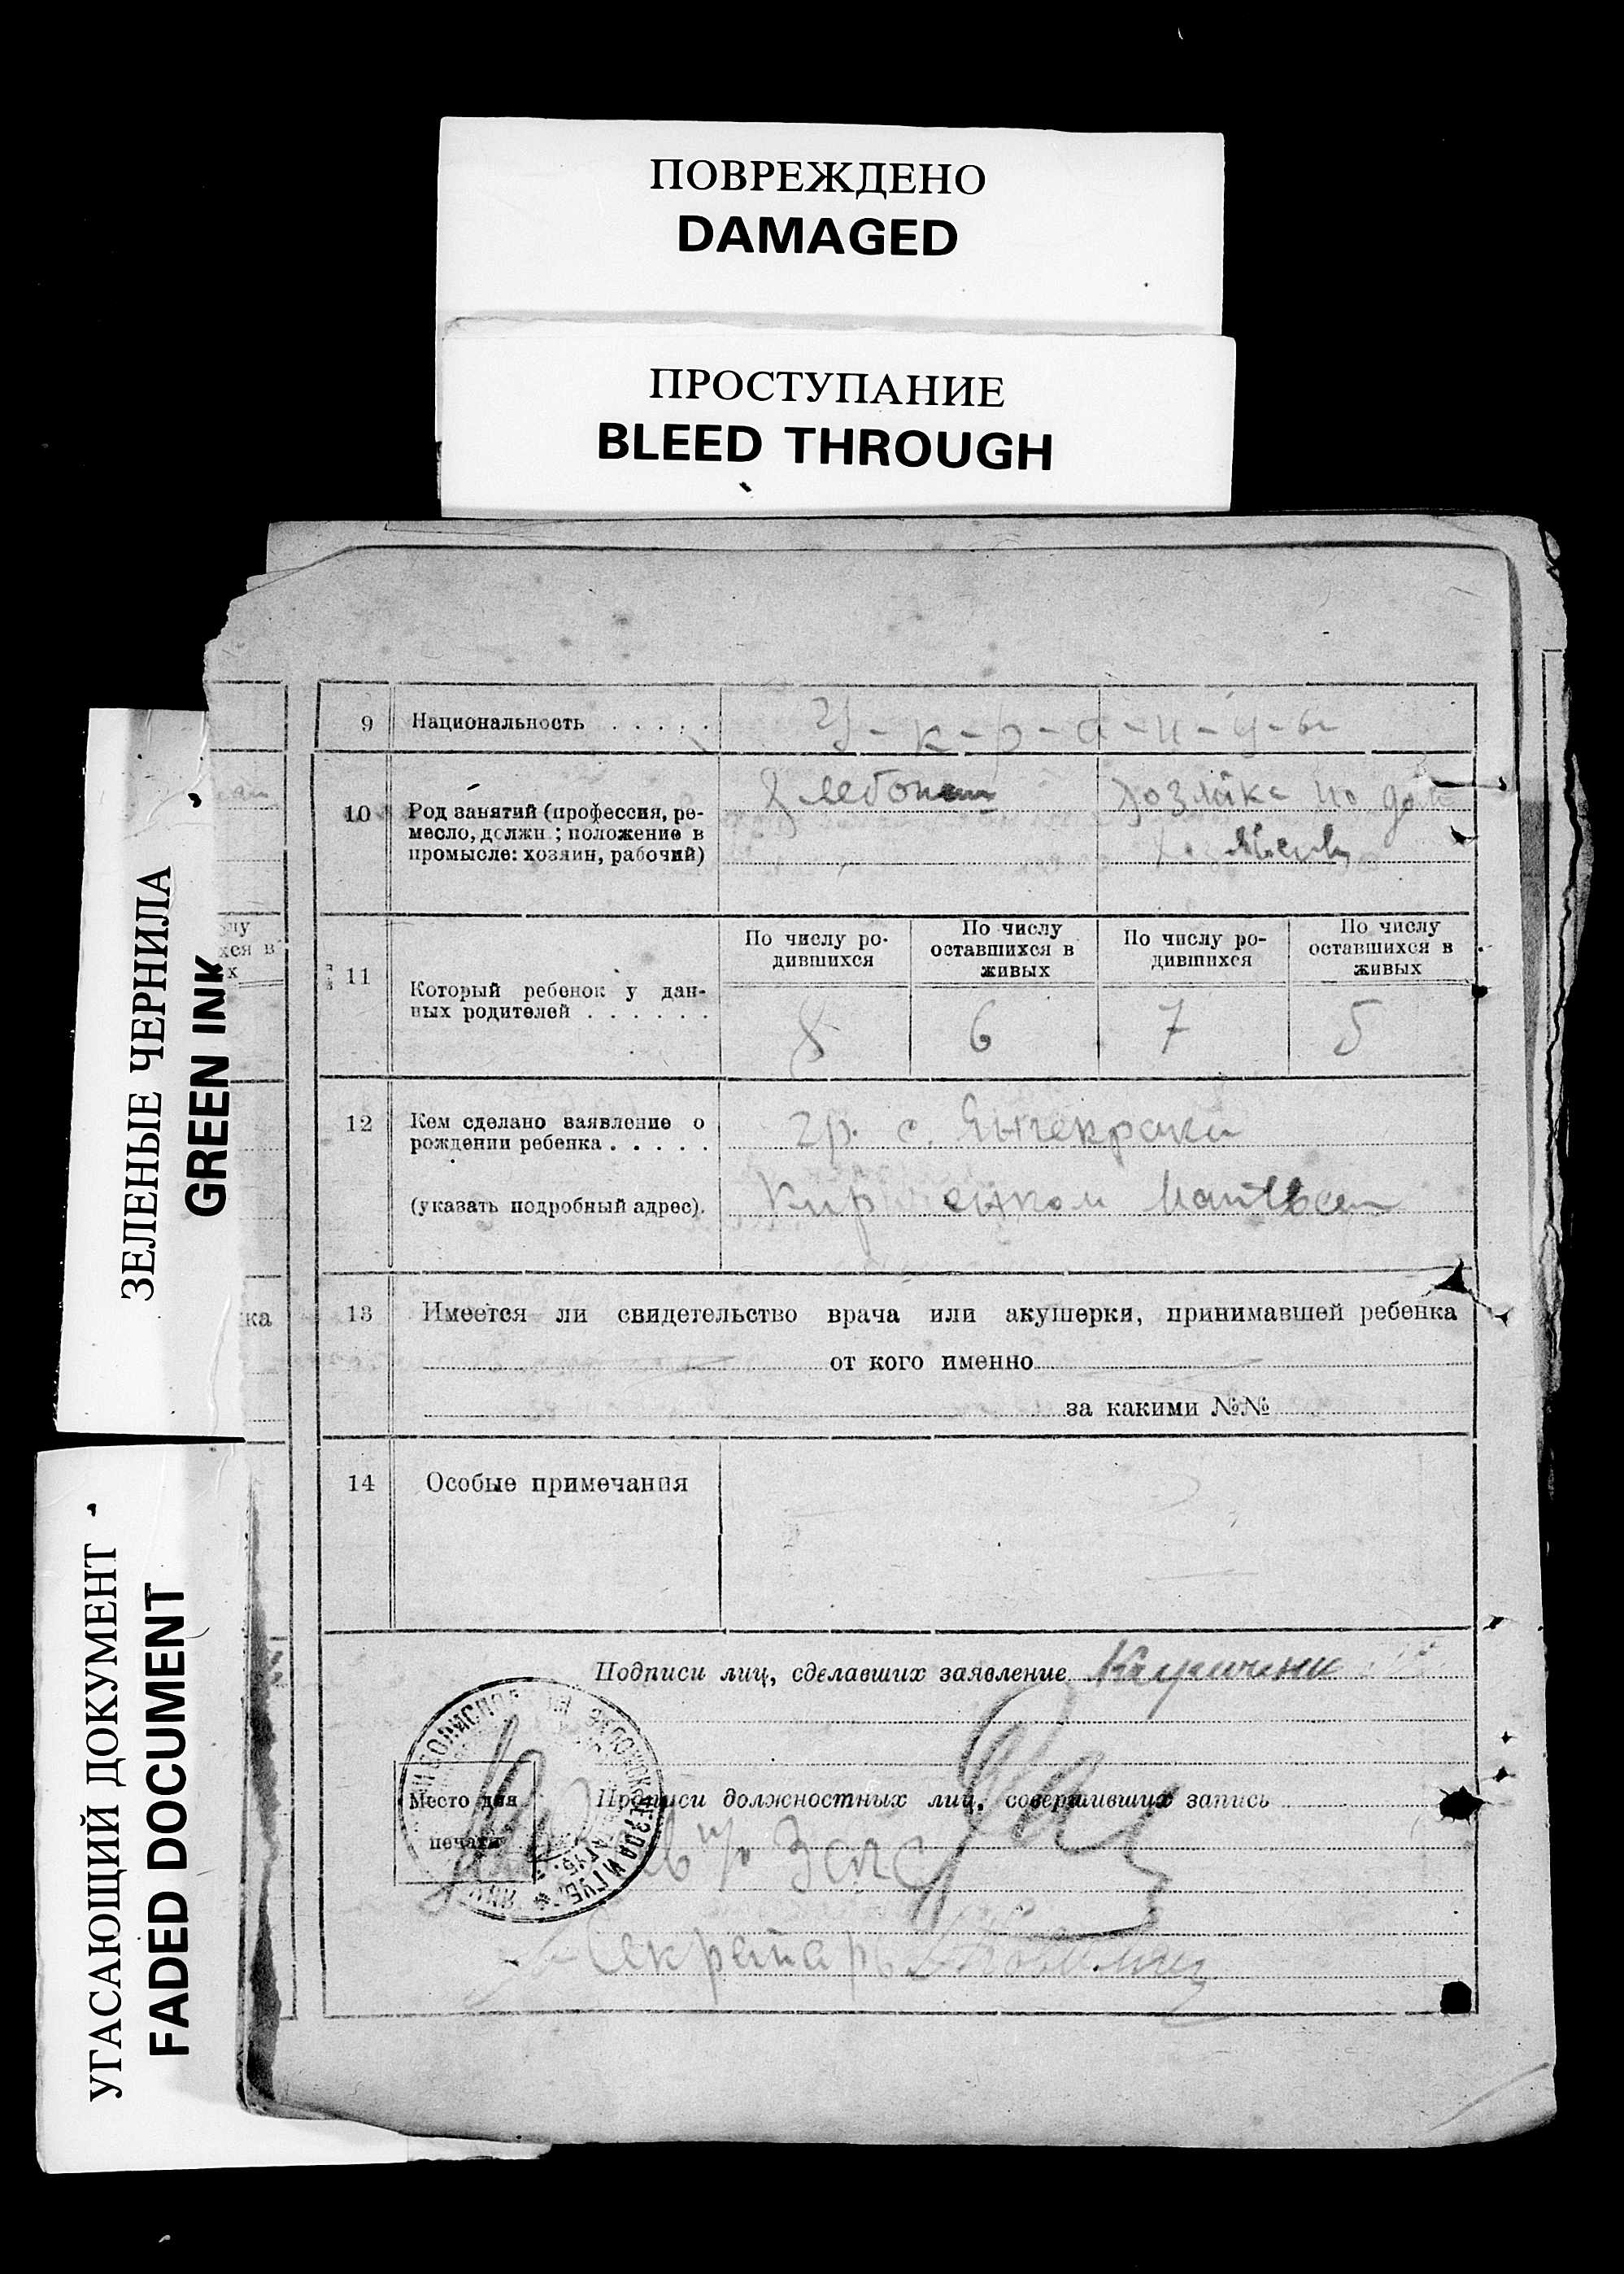 ПОВРЕЖДЕНО
DAMAGED
ПРОСТУПАНИЕ
BLEED THROUGH
ЗЕЛЕНЫЕ ЧЕРНИЛА
GREEN INK
УГАСАЮЩИЙ ДОКУМЕНТ
FADED DOCUMENT
9 Национальность . . . . . У-к-р-а-и-ц-ы
10 Род занятий (профессия, ре-
месло, должн.; положение в
промысле: хозяин, рабочий)
Хлебопаш
хозяйка по дом
11 Который ребенок у дан-
ных родителей . . . . . .
По числу ро-
дившихся
По числу
оставшихся в
живых
По числу ро-
дившихся
По числу
оставшихся в
живых
8 6 7 5
12 Кем сделано заявление о
рождении ребенка . . . . .
гр. с. Янчекраки
(указать подробный адрес).
Матвеем
13 Имеется ли свидетельство врача или акушерки, принимавшей ребенка
от кого именно
за какими №№
14 Особые примечания
Подписи лиц, сделавших заявление
Место для
печати
Подписи должностных лиц, совершивших запись
Зав п/о Загс
Секретарь